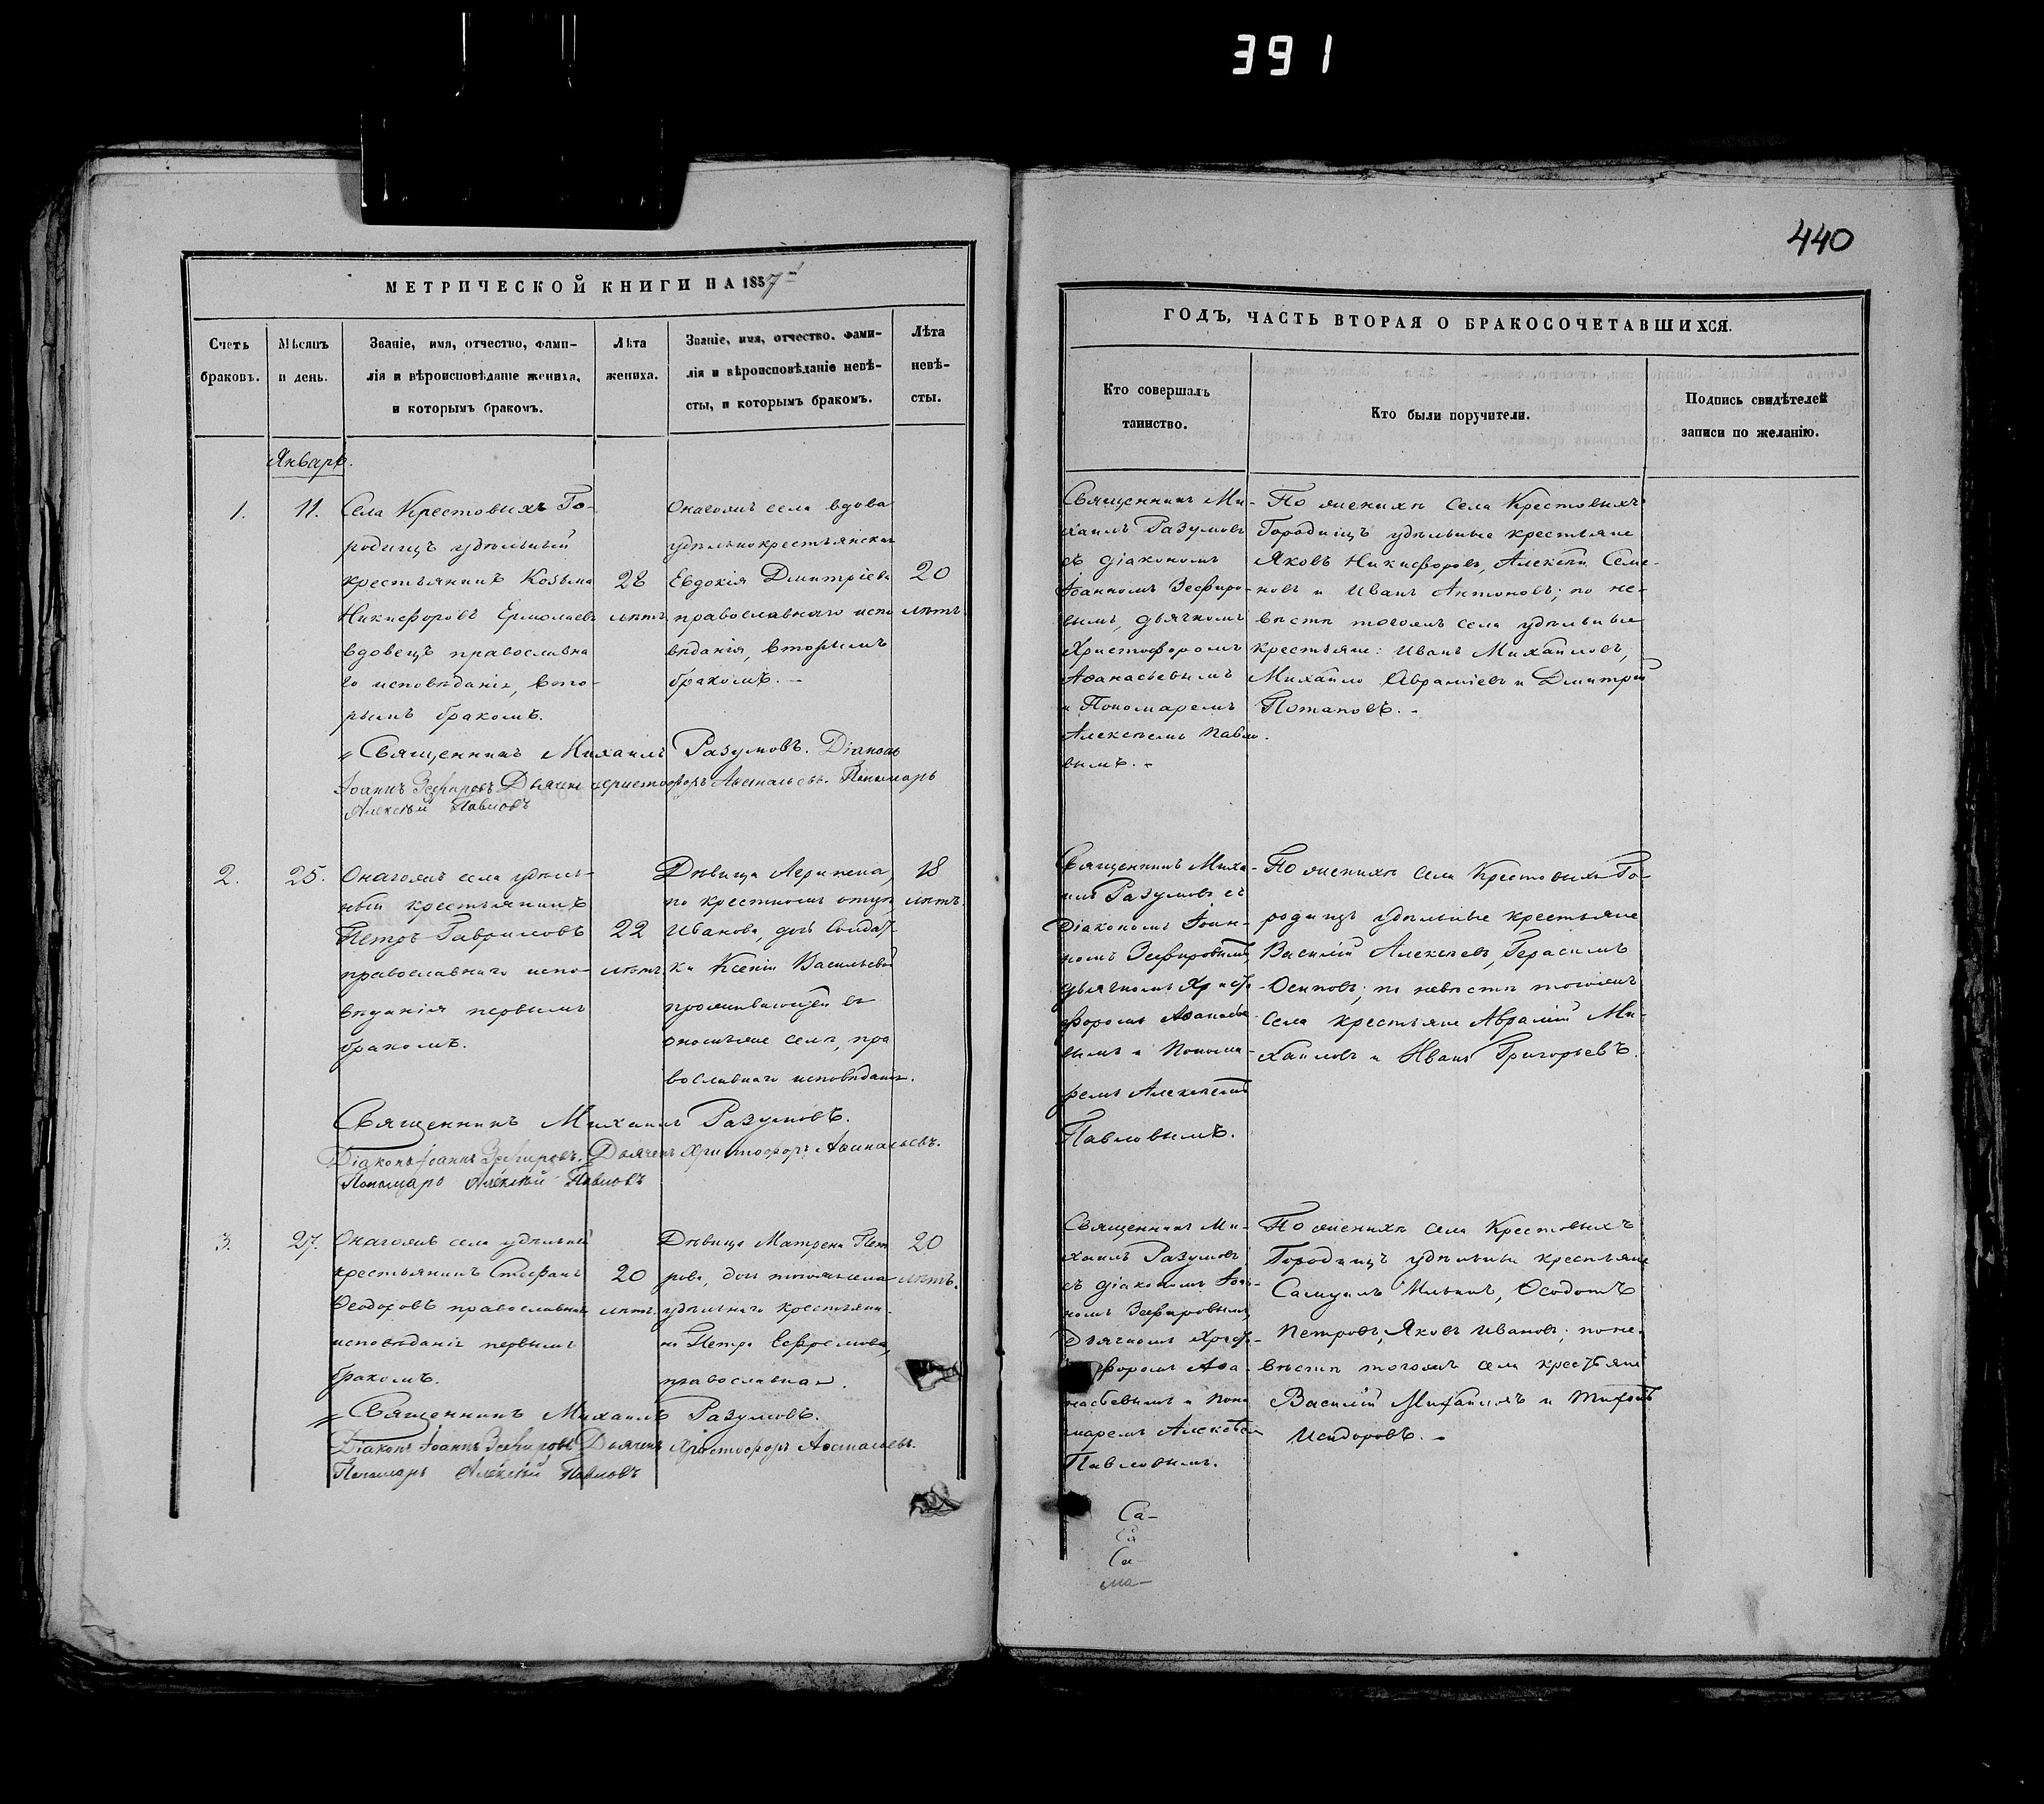 391
440
МЕТРИЧЕСКОЙ КНИГИ НА 1857й
Счетъ
браковъ.
Мѣсяцъ
и день.
Званіе, имя, отчество, фами-
лія и вѣроисповѣданіе жениха,
и которымъ бракомъ.
Лѣта
жениха.
Званіе, имя, отчество, фами-
лія и вѣроисповѣданіе невѣ-
сты, и которымъ бракомъ.
Лѣта
невѣ-
сты.
Январь.
1.
11.
Села Крестовыхъ Го-
родищъ удѣльный
крестьянинъ Козьма
Никифоровъ Ермолаевъ
вдовецъ православна
го исповѣданія, вто-
рымъ бракомъ.
28
лѣтъ
Онагожъ села вдова
удѣльнокрестьянская
Евдокія Дмитріева
православнаго испо
вѣданія, вторымъ
бракомъ. -
20
лѣтъ.
Священникъ Михаилъ Разумовъ. Діаконъ
Іоаннъ Зефировъ Дьячекъ Христофоръ Аѳанасьевъ. Пономарь
Алексѣй Павловъ
2.
25.
Онагожъ села удѣль-
ный крестьянинъ
Петръ Гавриловъ
православнаго испо-
вѣданія первымъ
бракомъ.
22
лѣтъ
Дѣвица Агрипена,
по крестному отцу
Иванова, дочь Солдат-
ки Ксеніи Васильевой
проживающей въ
ономъже селѣ, пра
вославнаго исповѣданія.
18
лѣтъ.
Священникъ Михаилъ Разумовъ.
Діаконъ Іоаннъ Зефировъ. Дьячекъ Христофоръ Аѳанасьевъ.
Пономарь Алексѣй Павловъ
3.
27.
Онагожъ села удѣльный
крестьянинъ Стефанъ
Ѳеодоровъ православнаго
исповѣданія первымъ
бракомъ.
20
лѣтъ.
Дѣвица Матрена Пет
рова, дочь тогожъ села
удѣльнаго крестьяни-
на Петра Ефремова,
православная.
20
лѣтъ.
Священникъ Михаилъ Разумовъ.
Діаконъ Іоаннъ Зефировъ Дьячекъ Христофоръ Аѳанасьевъ.
Пономарь Алексѣй Павловъ
ГОДЪ, ЧАСТЬ ВТОРАЯ О БРАКОСОЧЕТАВШИХСЯ.
Кто совершалъ
таинство.
Кто были поручители.
Подпись свидѣтелей
записи по желанію.
Священникъ Ми-
хаилъ Разумовъ
съ діакономъ
Іоанномъ Зефиро-
вымъ, дьячкомъ
Христофоромъ
Аѳанасьевымъ
и Пономаремъ
Алексѣемъ Павло
вымъ. -
По женихѣ села Крестовыхъ
Городищъ удѣльные крестьяне
Яковъ Никифоровъ, Алексѣй Семе-
новъ и Иванъ Антоновъ; по не-
вѣстѣ тогожъ села удѣльные
крестьяне: Иванъ Михайловъ,
Михайло Авраміевъ и Дмитрій
Потаповъ. -
Священникъ Миха-
илъ Разумовъ съ
Діакономъ Іоан-
номъ Зефировымъ,
дьячкомъ Христо-
форомъ Аѳанасье
вымъ и Понома-
ремъ Алексѣемъ
Павловымъ.
По женихѣ села Крестовыхъ Го-
родищъ удѣльные крестьяне
Василій Алексѣевъ, Герасимъ
Осиповъ; по невѣстѣ тогожъ
села крестьяне Аврамій Ми-
хайловъ и Иванъ Григорьевъ.
Священникъ Ми-
хаилъ Разумовъ
съ діакономъ Іоан-
номъ Зефировымъ,
Дьячкомъ Христо-
форомъ Аѳа-
насьевымъ и Поно
маремъ Алексѣем
Павловымъ.
По женихѣ села Крестовыхъ
Городищъ удѣльные крестьяне
Самуилъ Ильинъ, Ѳеодотъ
Петровъ, Яковъ Ивановъ; по не-
вѣстѣ тогожъ села крестьяне
Василій Михайловъ и Тихонъ
Исидоровъ. -
Са-
Са
Са-
ма-